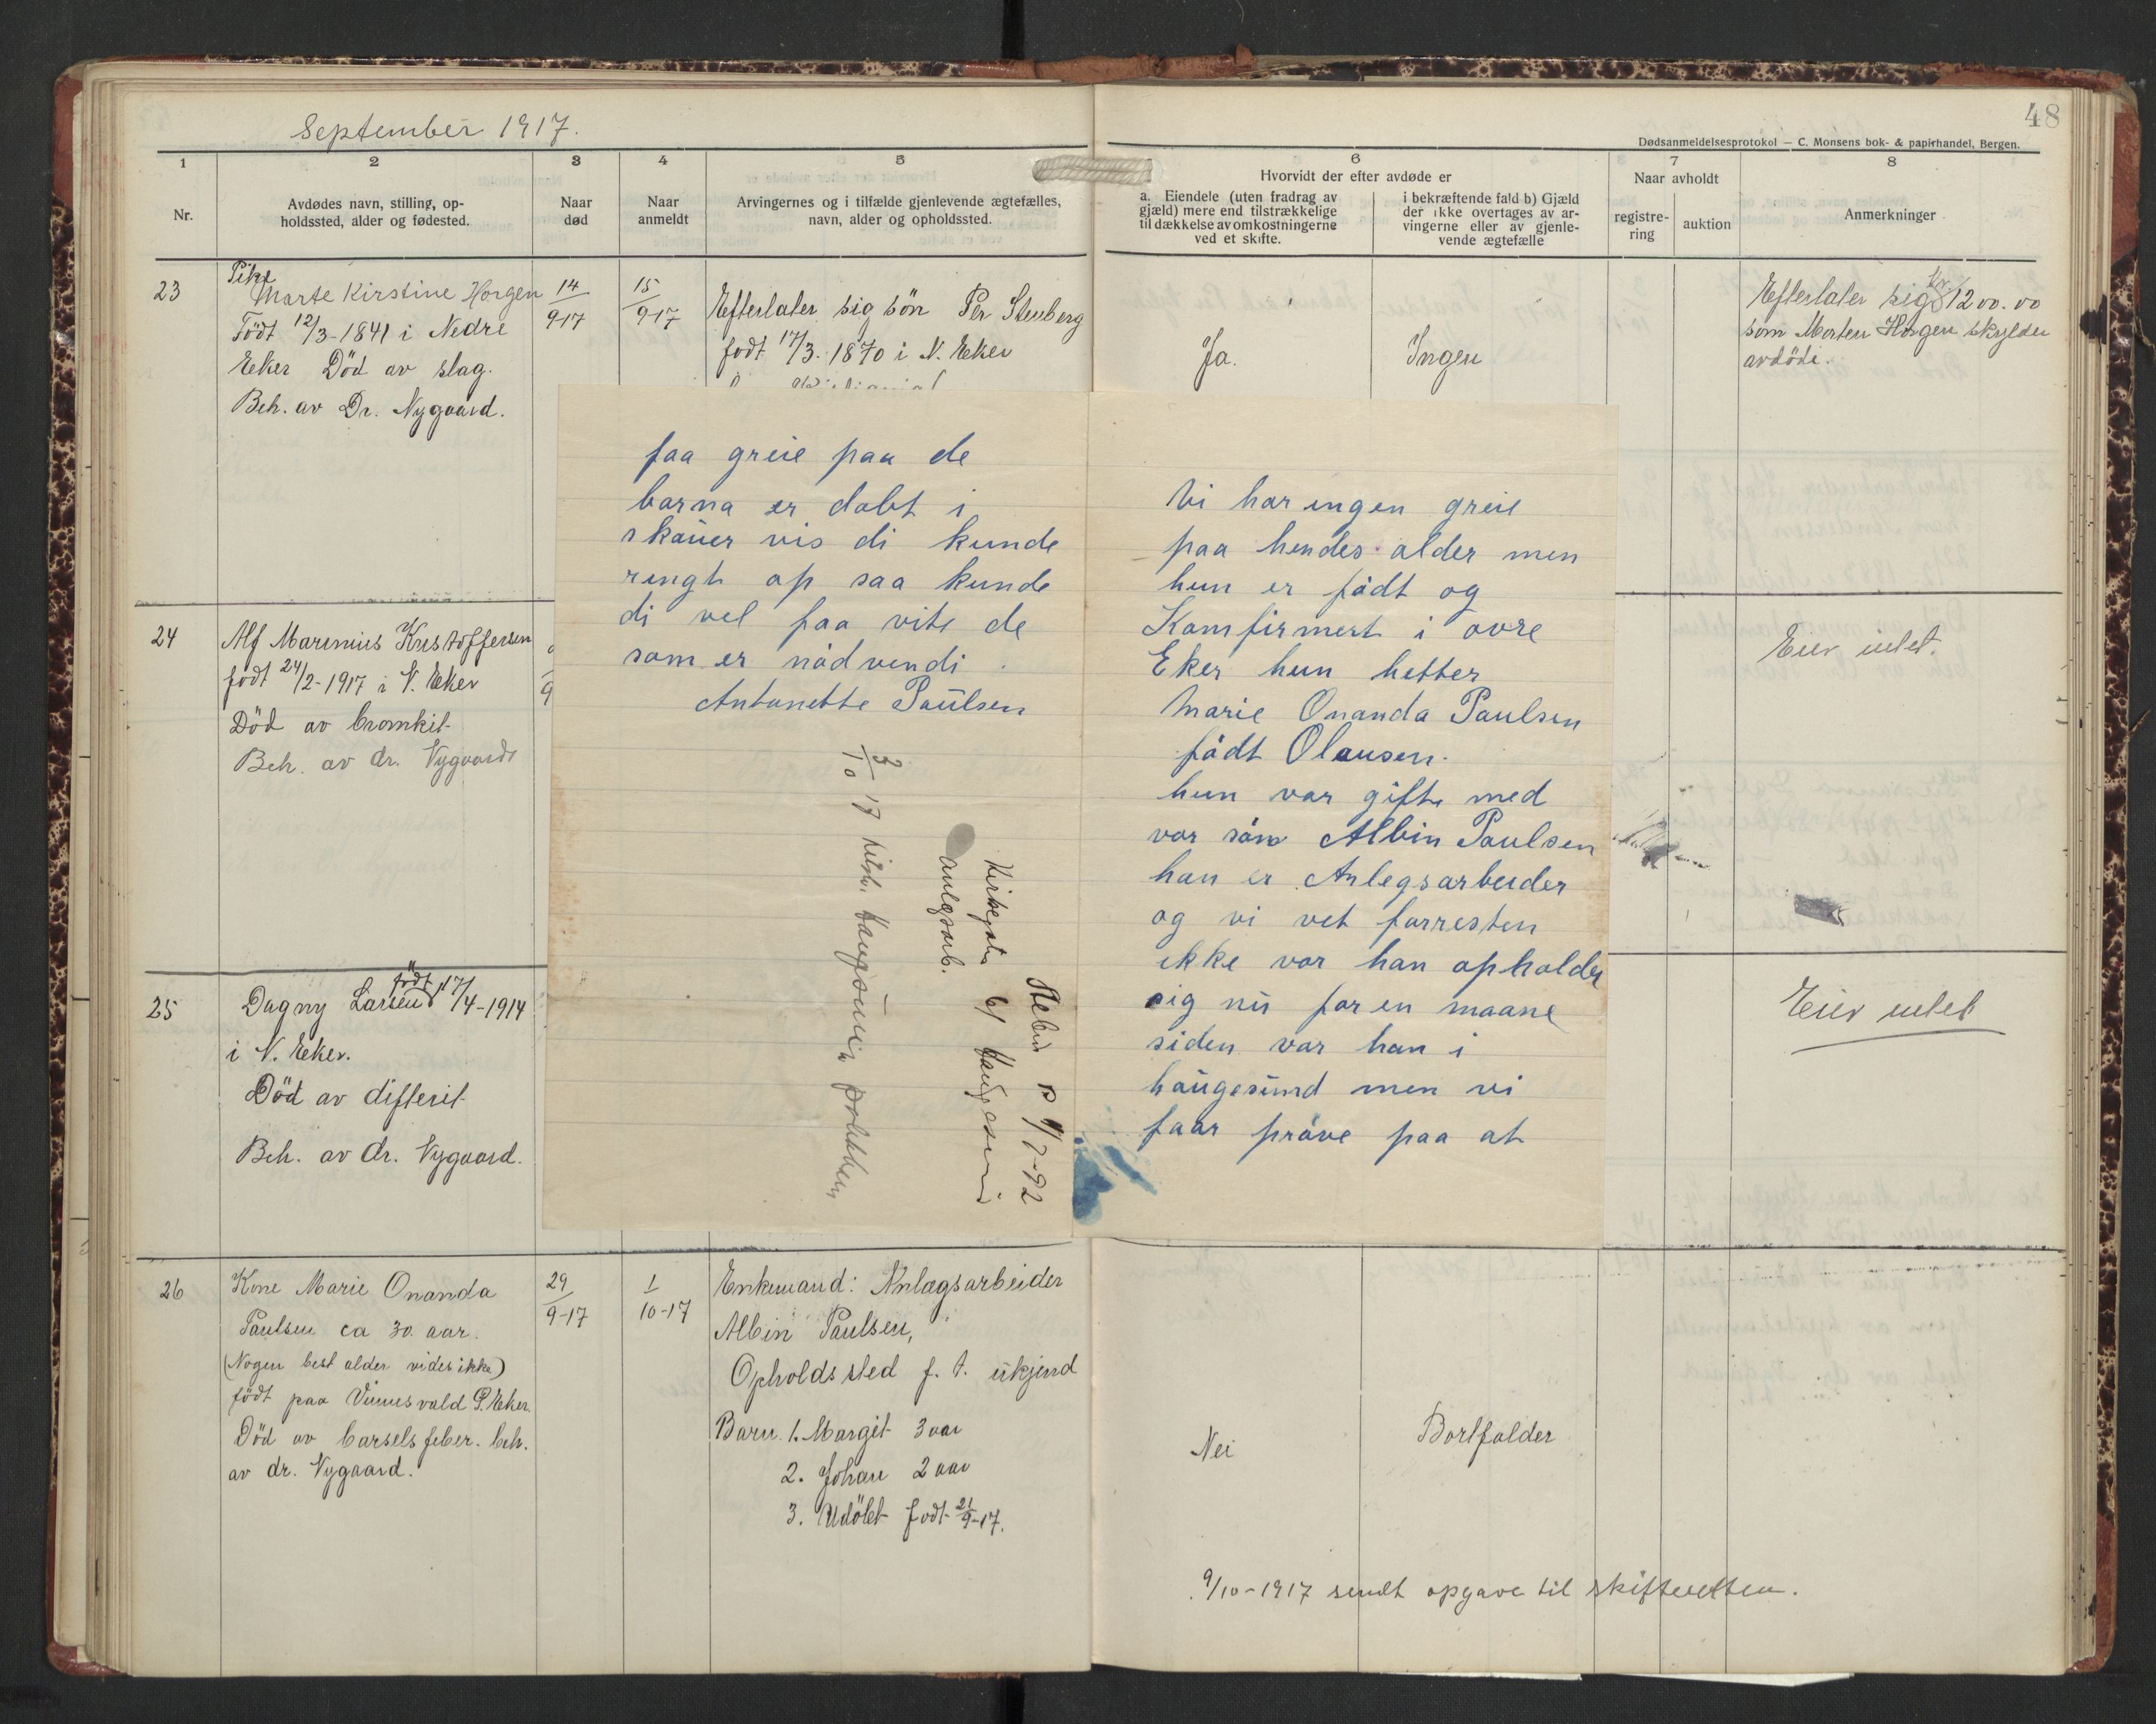 September 1917.
48
Dødsanmeldelsesprotokol — C. Monsens bok- & papirhandel, Bergen.
1
2
3
4
5
6
7
8
Nr.
Avdødes navn, stilling, op-
holdssted, alder og fødested.
Naar
død
Naar
anmeldt
Arvingernes og i tilfælde gjenlevende ægtefælles,
navn, alder og opholdssted.
Hvorvidt der efter avdøde er
a. Eiendele (uten fradrag av
gjæld) mere end tilstrækkelige
til dækkelse av omkostningerne
ved et skifte.
i bekræftende fald b) Gjæld
der ikke overtages av ar-
vingerne eller av gjenle-
vende ægtefælle
Naar avholdt
registre-
ring
auktion
Anmerkninger
23
Pike
Marte Kirstine Horgen
Födt 12/3-1841 i Nedre
Eker Död av slag.
Beh. av Dr. Nygaard.
14/9-17
15/9-17
Efterlater sig sön Per Stenberg
födt 17/3-1870 i N. Eker
Ja.
Ingen
Efterlater sig Kr 1200.00
som Morten Horgen skylder
avdöde.
24
Alf Marenius Kristoffersen
födt 24/2-1917 i N. Eker
Död av bronkit
Beh. av dr. Nygaard
9
Eier intet.
25
Dagny Larsen födt 17/4-1914
i N. Eker.
Död av difterit
Beh. av dr. Nygaard.
Eier intet
26
Kone Marie Onanda
Paulsen ca 30 aar.
(Nogen best alder vides ikke)
födt paa Vinnesvald Ø. Eker.
Död av barselsfeber. beh.
av dr. Nygaard.
29/9-17
1/10-17
Enkemand: Anlægsarbeider
Albin Paulsen,
Opholdssted f. t. ukjend
Barn 1. Margit 3 aar
2. Johan 2 aar
3. Udöbt födt 21/9-17.
Nei
Bortfalder
9/10-1917 sendt opgave til skifteretten.
Vi har ingen greie
paa hendes alder men
hun er född og
Komfirmert i ovre
Eker hun hetter
Marie Onanda Paulsen
född Olausen.
hun var gifte med
vor sön Albin Paulsen
han er Anlegsarbeider
og vi vet forresten
ikke vor han opholder
sig nu for en maane
siden var han i
haugesund men vi
faar pröve paa at
faa greie paa de
barna er dobt i
skauer vis di kunde
ringt op saa kunde
di vel faa vite de
som er nödvendi.
Antonette Paulsen
3/10 17 Haugesund politken
anlægsarb.
Kirkegate 61 Haugesund
7-92